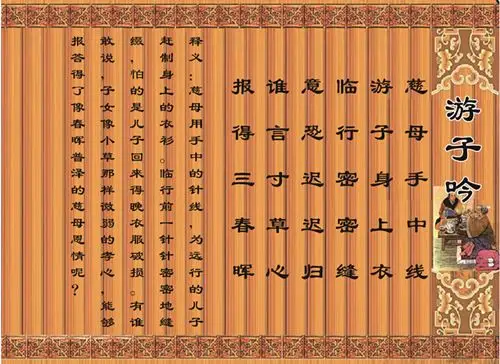 游子吟
慈母手中线
游子身上衣
临行密密缝
意恐迟迟归
谁言寸草心
报得三春晖
释义：慈母用手中的针线，为远行的儿子
赶制身上的衣衫。临行前一针针密密地缝
缀，怕的是儿子回来得晚衣服破损。有谁
敢说，子女像小草那样微弱的孝心，能够
报答得了像春晖普泽的慈母恩情呢？